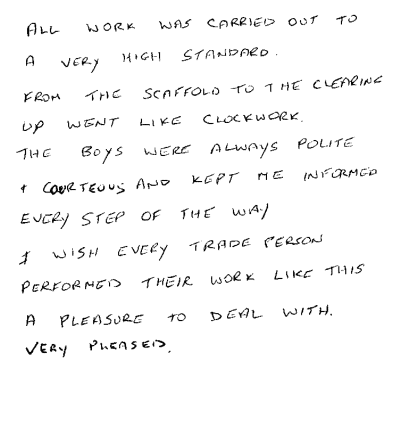 ALL WORK WAS CARRIED OUT TO
A VERY HIGH STANDARD.
FROM THE SCAFFOLD TO THE CLEARING
UP WENT LIKE CLOCKWORK.
THE BOYS WERE ALWAYS POLITE
+ COURTEOUS AND KEPT ME INFORMED
EVERY STEP OF THE WAY
I WISH EVERY TRADE PERSON
PERFORMED THEIR WORK LIKE THIS
A PLEASURE TO DEAL WITH.
VERY PLEASED.